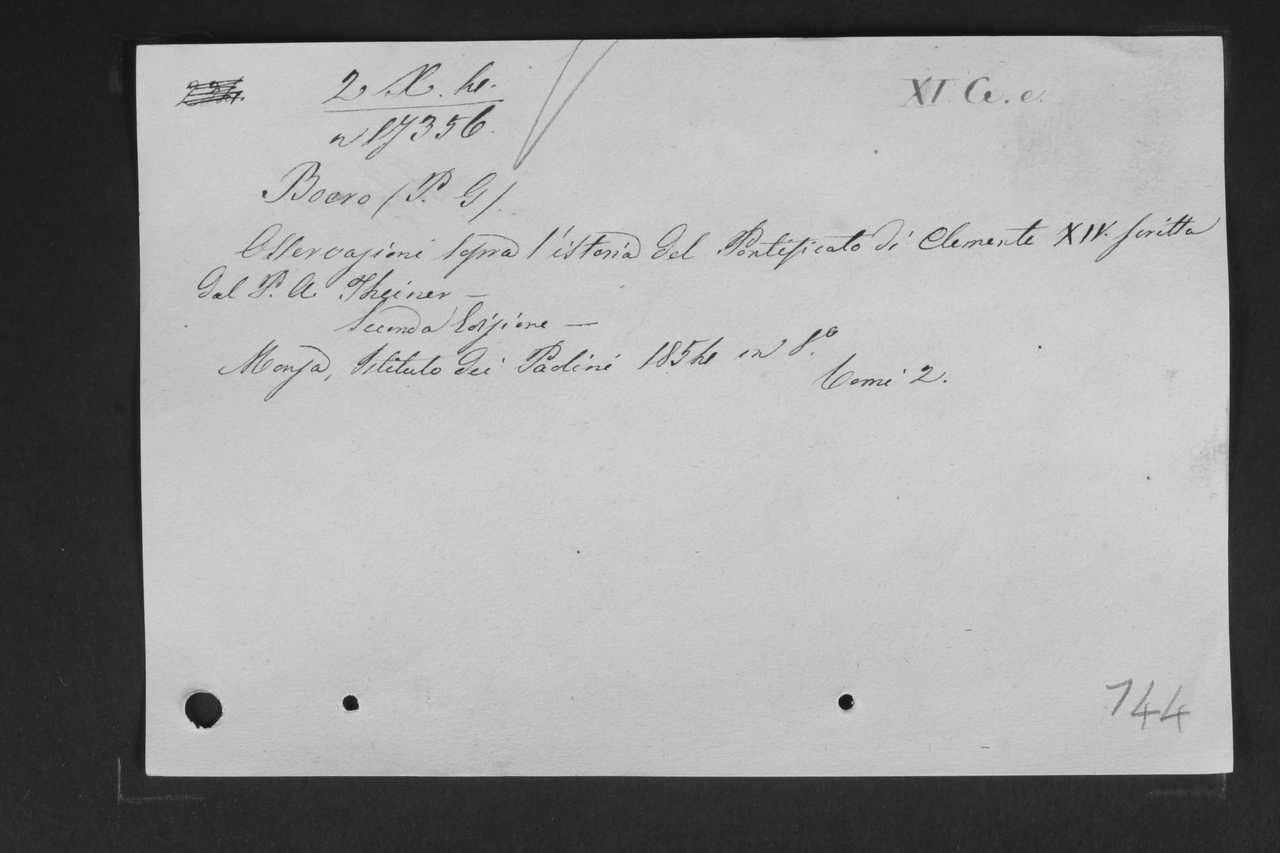 2 X. 4.
XI C. e.
n 17356.
Boero (P. G).
Osservazioni sopra l'istoria del Pontificato di Clemente XIV. scritta
dal P. A. Theiner —
Seconda Edizione —
Monza, Istituto dei Paolini 1854 in 8.º
Tomi 2.
744